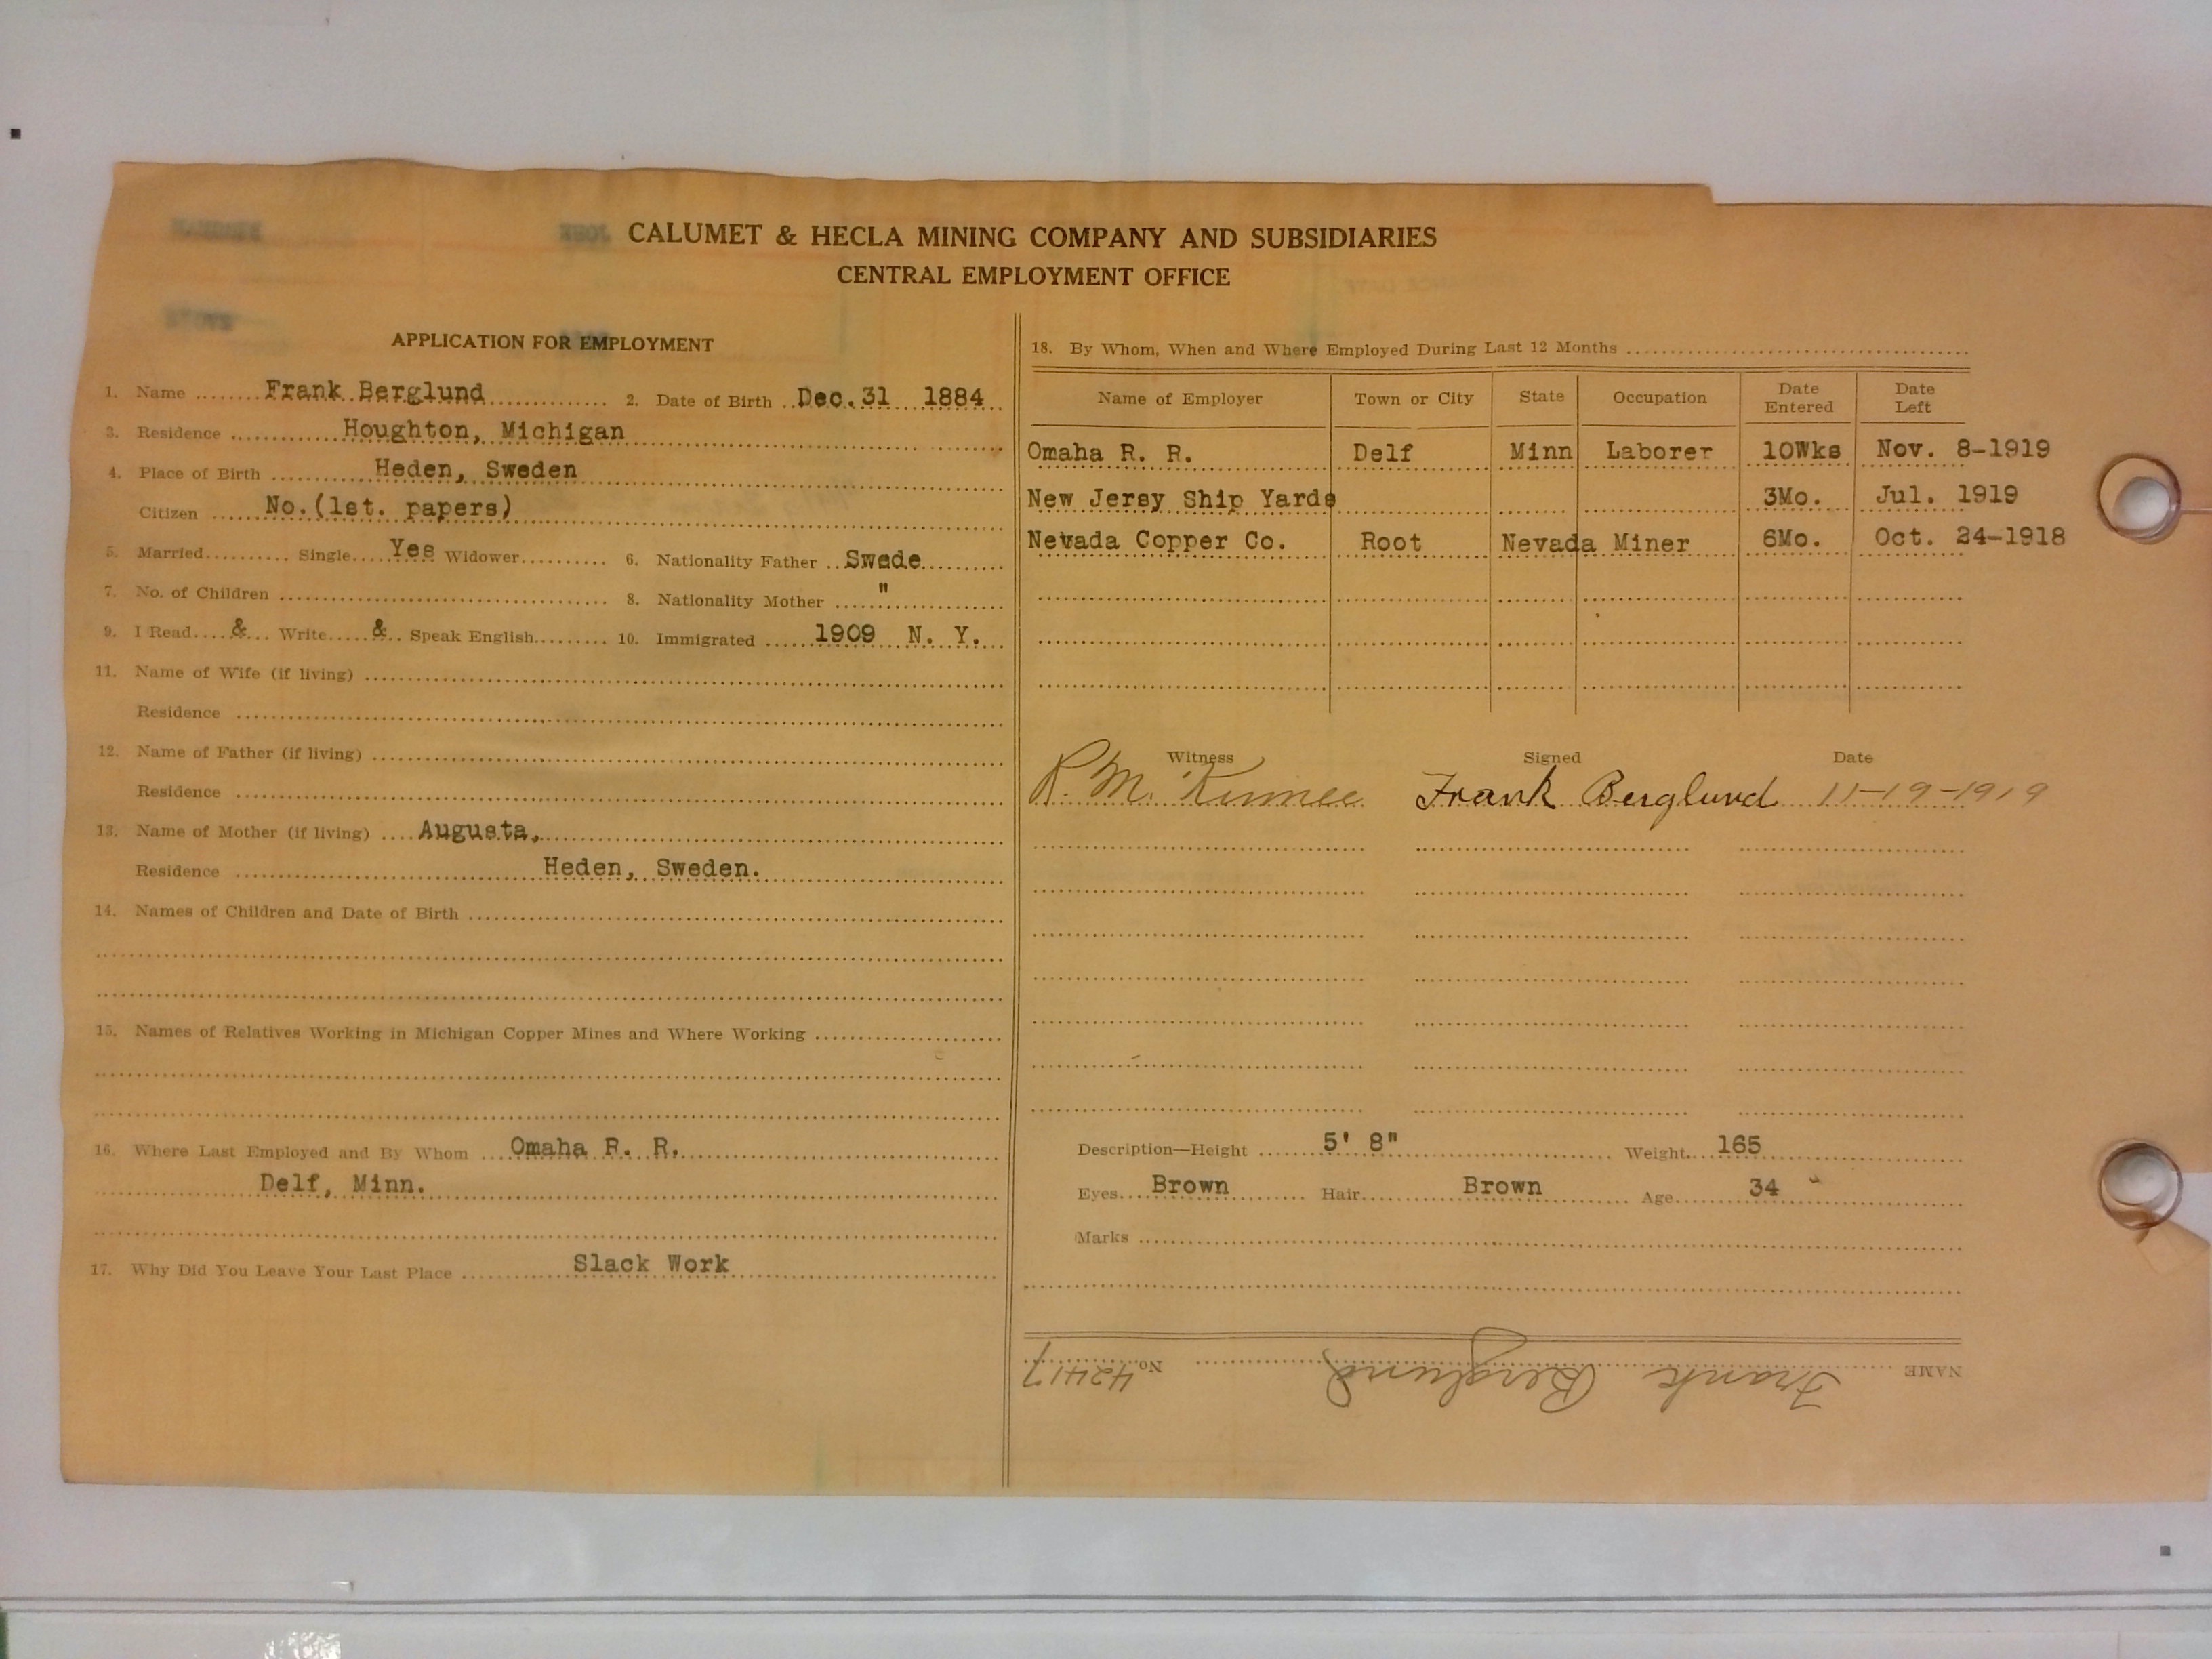 CALUMET & HECLA MINING COMPANY AND SUBSIDIARIES
CENTRAL EMPLOYMENT OFFICE
APPLICATION FOR EMPLOYMENT
1. Name Frank Berglund 2. Date of Birth Dec. 31 1884
3. Residence Houghton, Michigan
4. Place of Birth Heden, Sweden
Citizen No.(1st. papers)
5. Married Single Yes Widower 6. Nationality Father Swede
7. No. of Children 8. Nationality Mother "
9. I Read & Write & Speak English 10. Immigrated 1909 N. Y.
11. Name of Wife (if living)
Residence
12. Name of Father (if living)
Residence
13. Name of Mother (if living) Augusta,
Residence Heden, Sweden.
14. Names of Children and Date of Birth
15. Names of Relatives Working in Michigan Copper Mines and Where Working
16. Where Last Employed and By Whom Omaha R. R.
Delf, Minn.
17. Why Did You Leave Your Last Place Slack Work
18. By Whom, When and Where Employed During Last 12 Months
Name of Employer Town or City State Occupation Date Entered Date Left
Omaha R. R. Delf Minn Laborer 10Wks Nov. 8-1919
New Jersy Ship Yards 3Mo. Jul. 1919
Nevada Copper Co. Root Nevada Miner 6Mo. Oct. 24-1918
Witness Signed Date
R. M. Frank Berglund 11-19-1919
Description—Height 5' 8" Weight 165
Eyes Brown Hair Brown Age 34
Marks
NAME Frank Berglund No. 42417